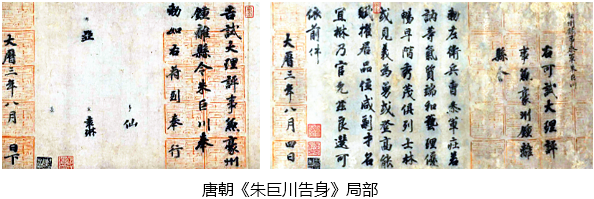 右可試大理評
事兼豪州鍾離
縣令
勅左衛兵曹參軍莊若
訥等氣質端和藝理優
暢早階秀茂俱列士林
或見義為勇或登高能
賦擢居品位咸副才名
宜楙乃官允茲良選可
依前件
大曆三年八月四日
告試大理評事兼豪州
鍾離縣令朱巨川奉
勅如右符到奉行
仙
袁琳
亞
大曆三年八月 日下
唐朝《朱巨川告身》局部